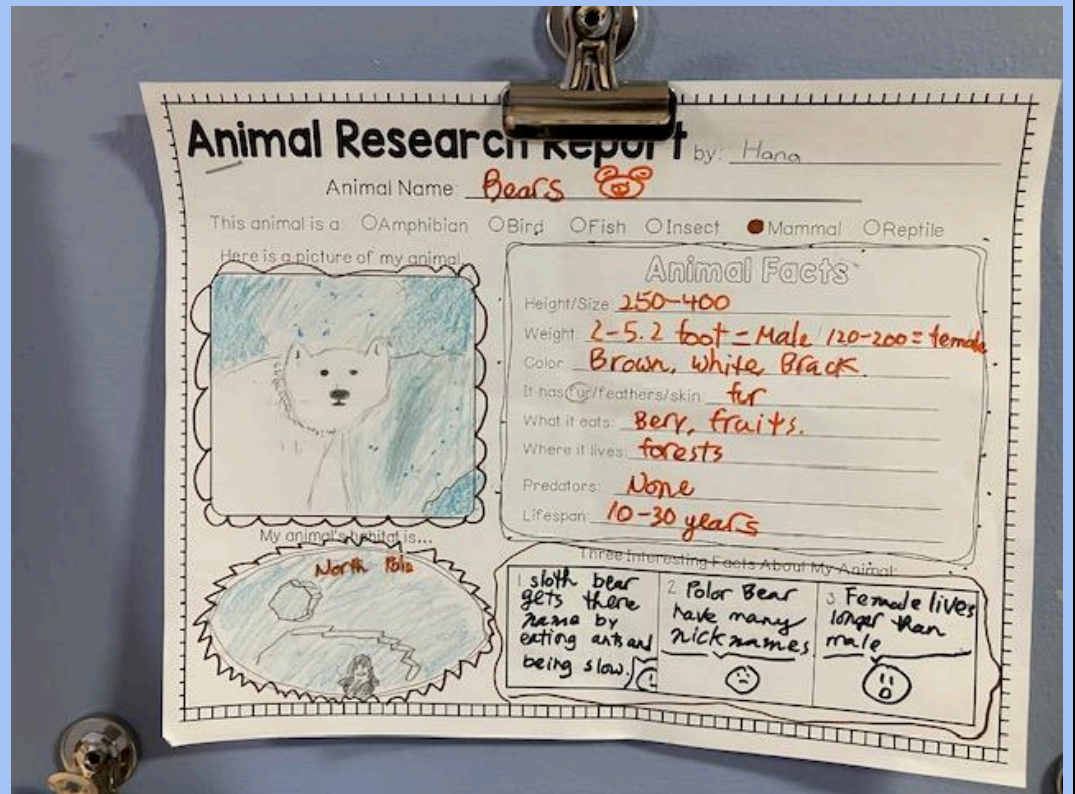 Animal Research Report by: Hana
Animal Name: Bears
This animal is a: Amphibian Bird Fish Insect Mammal Reptile
Here is a picture of my animal
Animal Facts
Height/Size: 250-400
Weight: 2-5.2 foot = Male / 120-200 = female
Color: Brown, white, Brack.
It has fur/feathers/skin: fur
What it eats: Bery, fraits.
Where it lives: forests
Predators: None
Lifespan: 10-30 years
My animal's habitat is...
North Pole
Three Interesting Facts About My Animal:
1. sloth bear
gets there
name by
eating ants and
being slow.
2. Polor Bear
have many
nick names
3. Female lives
longer than
male